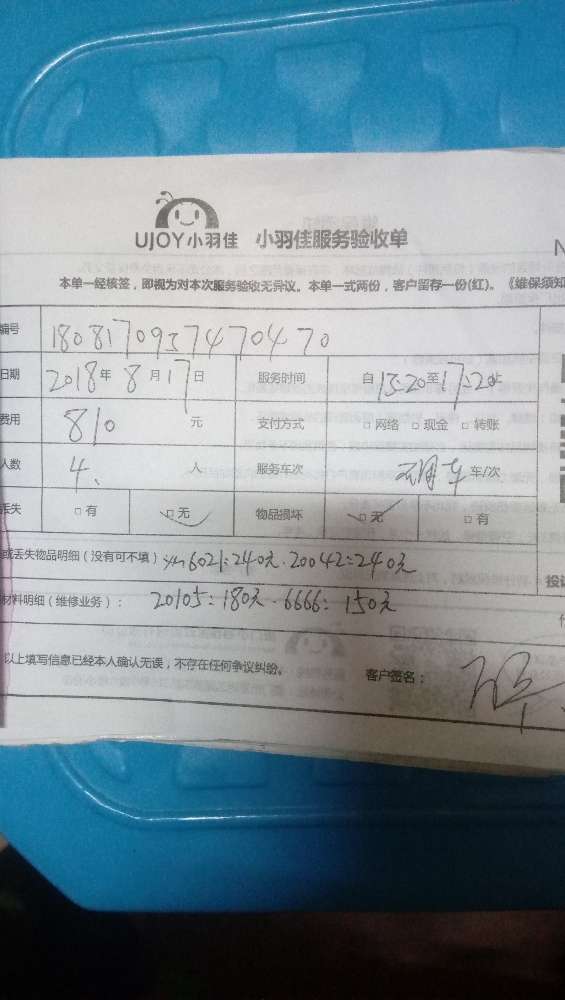 UJOY小羽佳 小羽佳服务验收单
本单一经核签，即视为对本次服务验收无异议。本单一式两份，客户留存一份(红)。《维保须知
编号 180817093747470470
日期 2018年8月17日 服务时间 自13:20至17:20止
费用 810 元 支付方式 □网络 □现金 □转账
人数 4、 人 服务车次 车/次
丢失 □有 □无 物品损坏 □无 □有
或丢失物品明细（没有可不填） 6021:240元.20042:240元
投诉
材料明细（维修业务）： 20105:180元.6666:150元
以上填写信息已经本人确认无误，不存在任何争议纠纷。 客户签名：